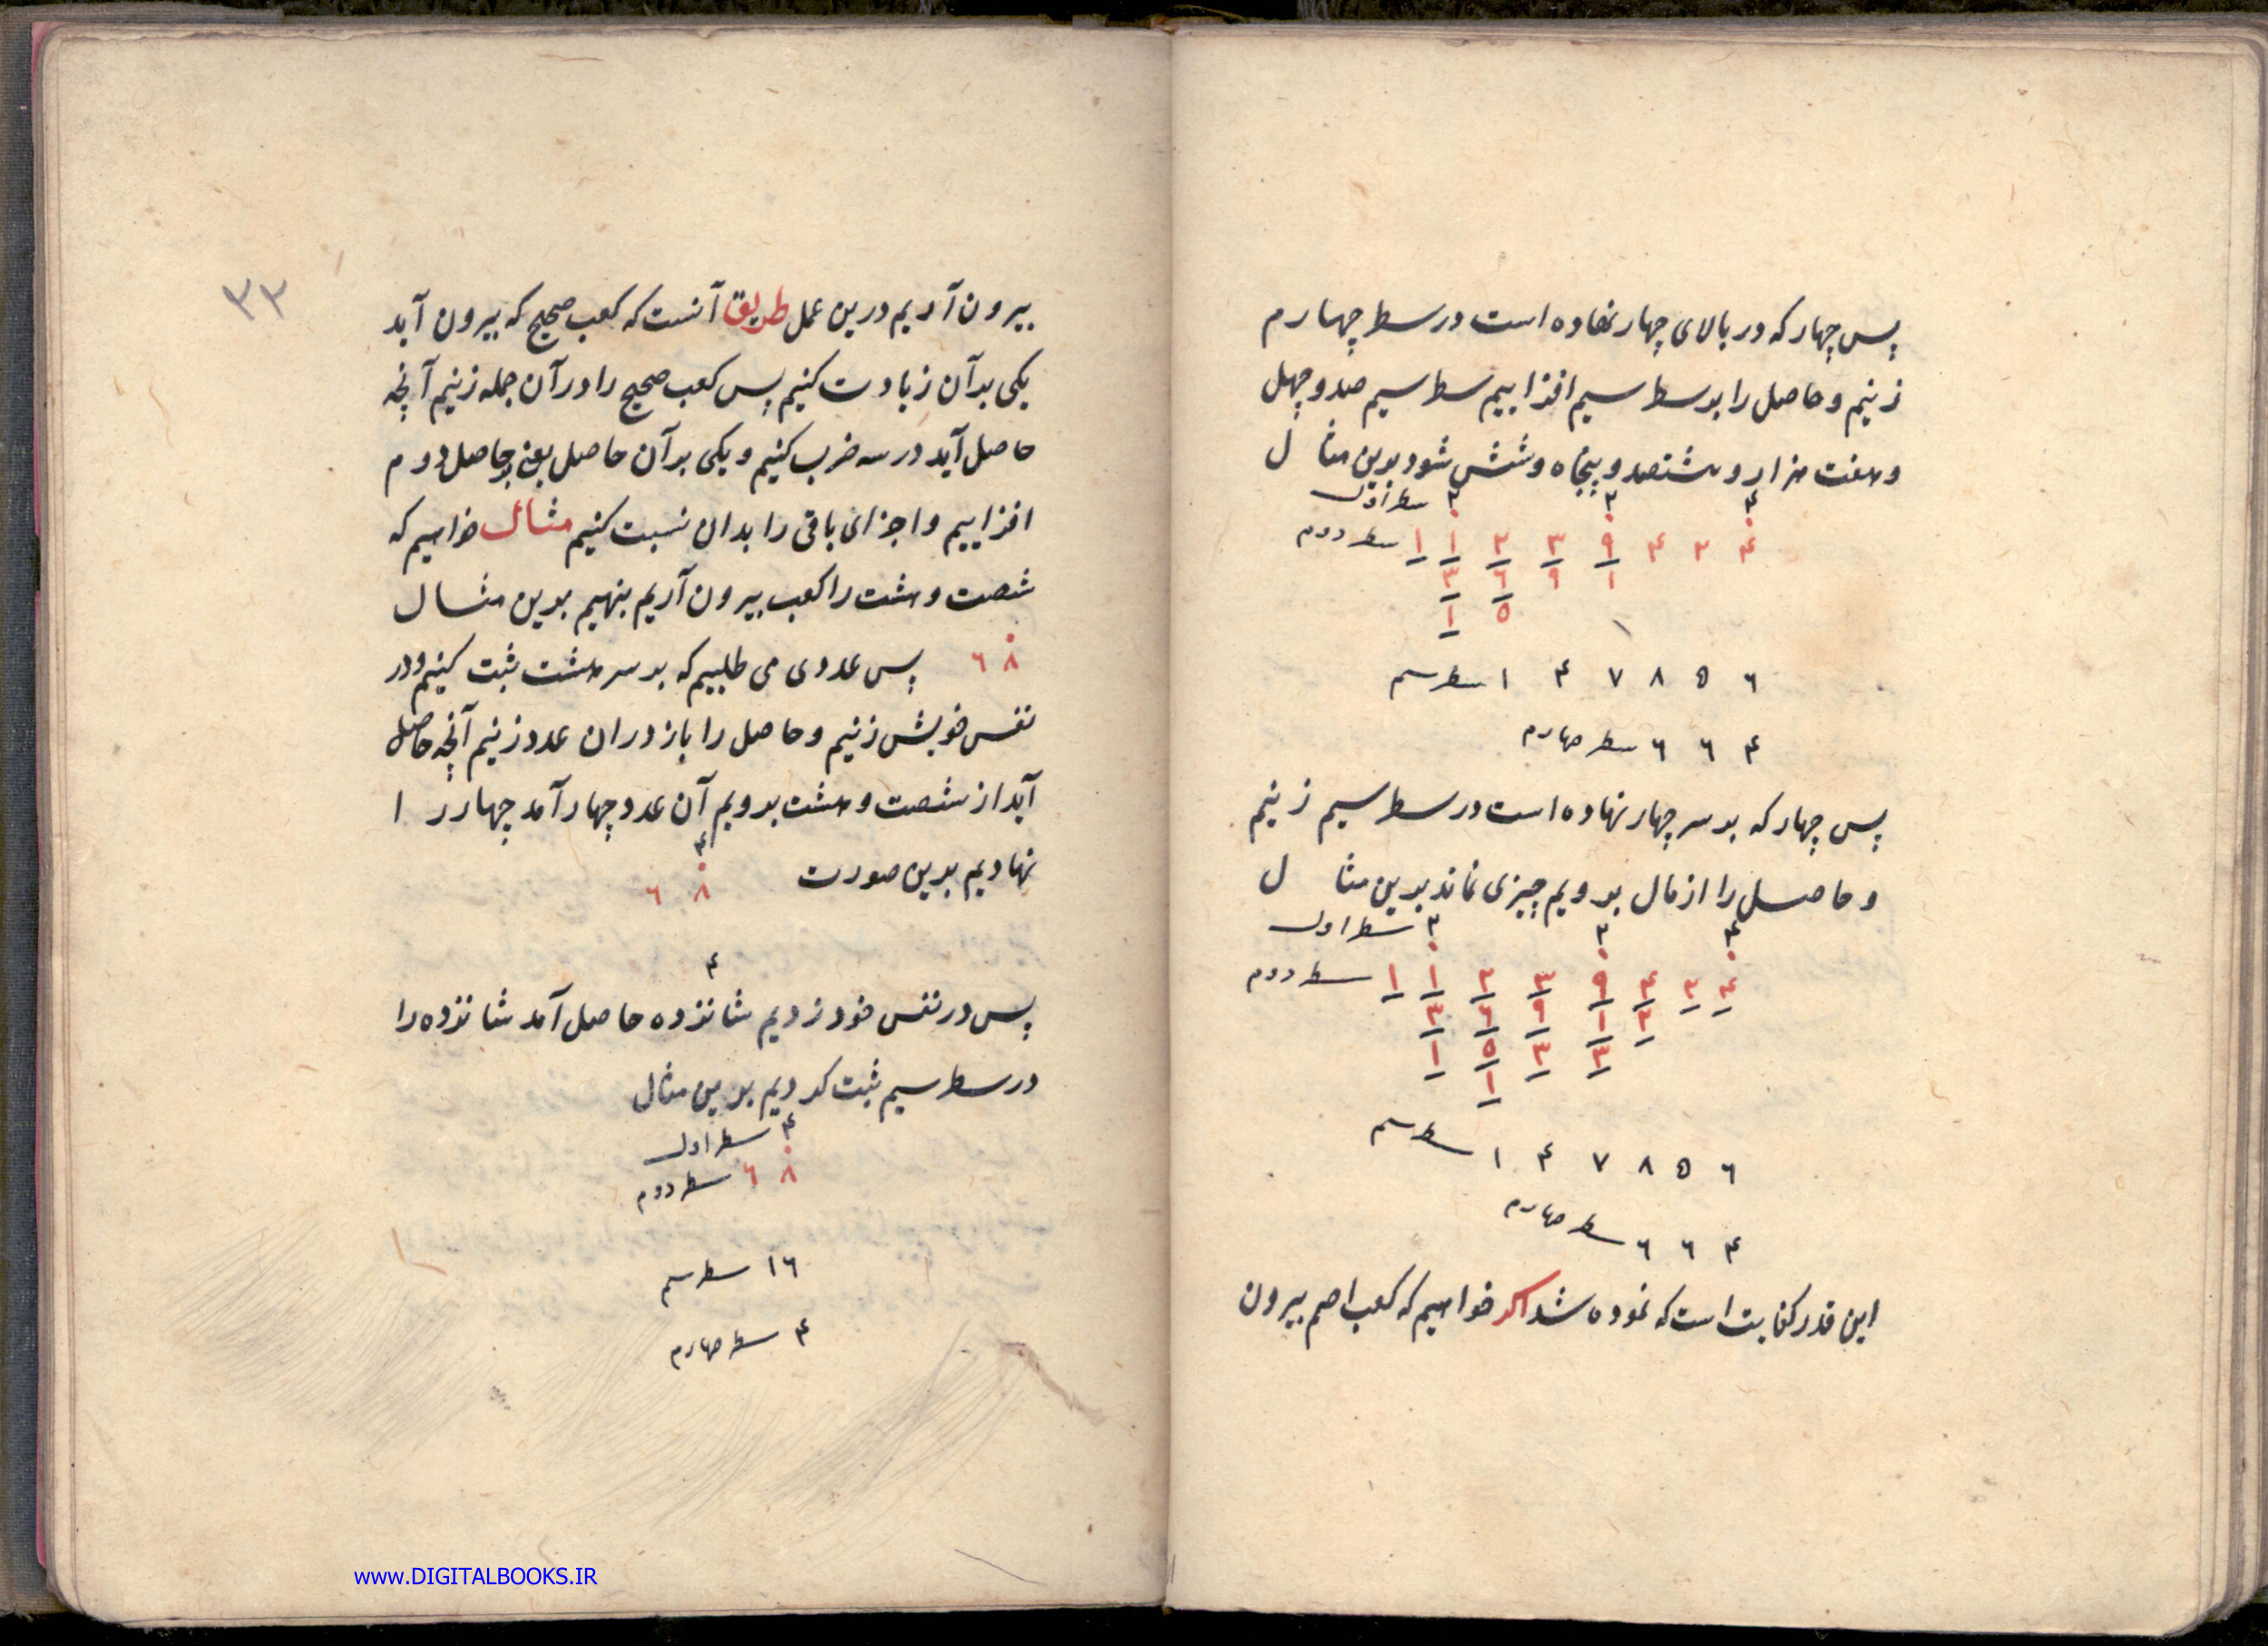 پس چهار که در بالای چهار نهاده است در سطر چهارم
زنیم و حاصل را بر سطر سیم افزاییم سطر سیم صد و چهل
و هفت هزار و هشتصد و پنجاه و شش شود برین مثال
۳ ۳ ۴ سطر اول
۱ ۱ ۲ ۳ ۹ ۴ ۲ ۴ سطر دوم
۳ ۶ ۹ ۱
۱ ۵
۱ ۴ ۷ ۸ ۵ ۶ سطر سیم
۶ ۶ ۴ سطر چهارم
پس چهار که بر سر چهار نهاده است در سطر سیم زنیم
و حاصل را از مال برویم چیزی نماند برین مثال
۳ ۳ ۴ سطر اول
سطر دوم
۱ ۴ ۷ ۸ ۵ ۶ سطر سیم
۶ ۶ ۴ سطر چهارم
این قدر کفایت است که نموده شد اکر خواهیم که کعب اصم بیرون
۳۲
بیرون آریم درین عمل طریق آنست که کعب صحیح که بیرون آید
یکی بدآن زیادت کنیم پس کعب صحیح را در آن جمله زنیم آنچه
حاصل آید در سه ضرب کنیم و یکی بر آن حاصل یعنی حاصل دوم
افزاییم و اجزای باقی را بدان نسبت کنیم مثال خواهیم که
شصت و هشت را کعب بیرون آریم بنهیم برین مثال
۶۸ پس عددی می طلبیم که بر سر هشت ثبت کنیم و در
نفس خویش زنیم و حاصل را باز دران عدد زنیم آنچه حاصل
آید از شصت و هشت برویم آن عدد چهار آمد چهار را
نهادیم بدین صورت ۴ ۶۸
۴
پس در نفس خود زدیم شانزده حاصل آمد شانزده را
در سطر سیم ثبت کردیم برین مثال
۴ سطر اول
۶۸ سطر دوم
۱۶ سطر سیم
۴ سطر چهارم
www.DIGITALBOOKS.IR